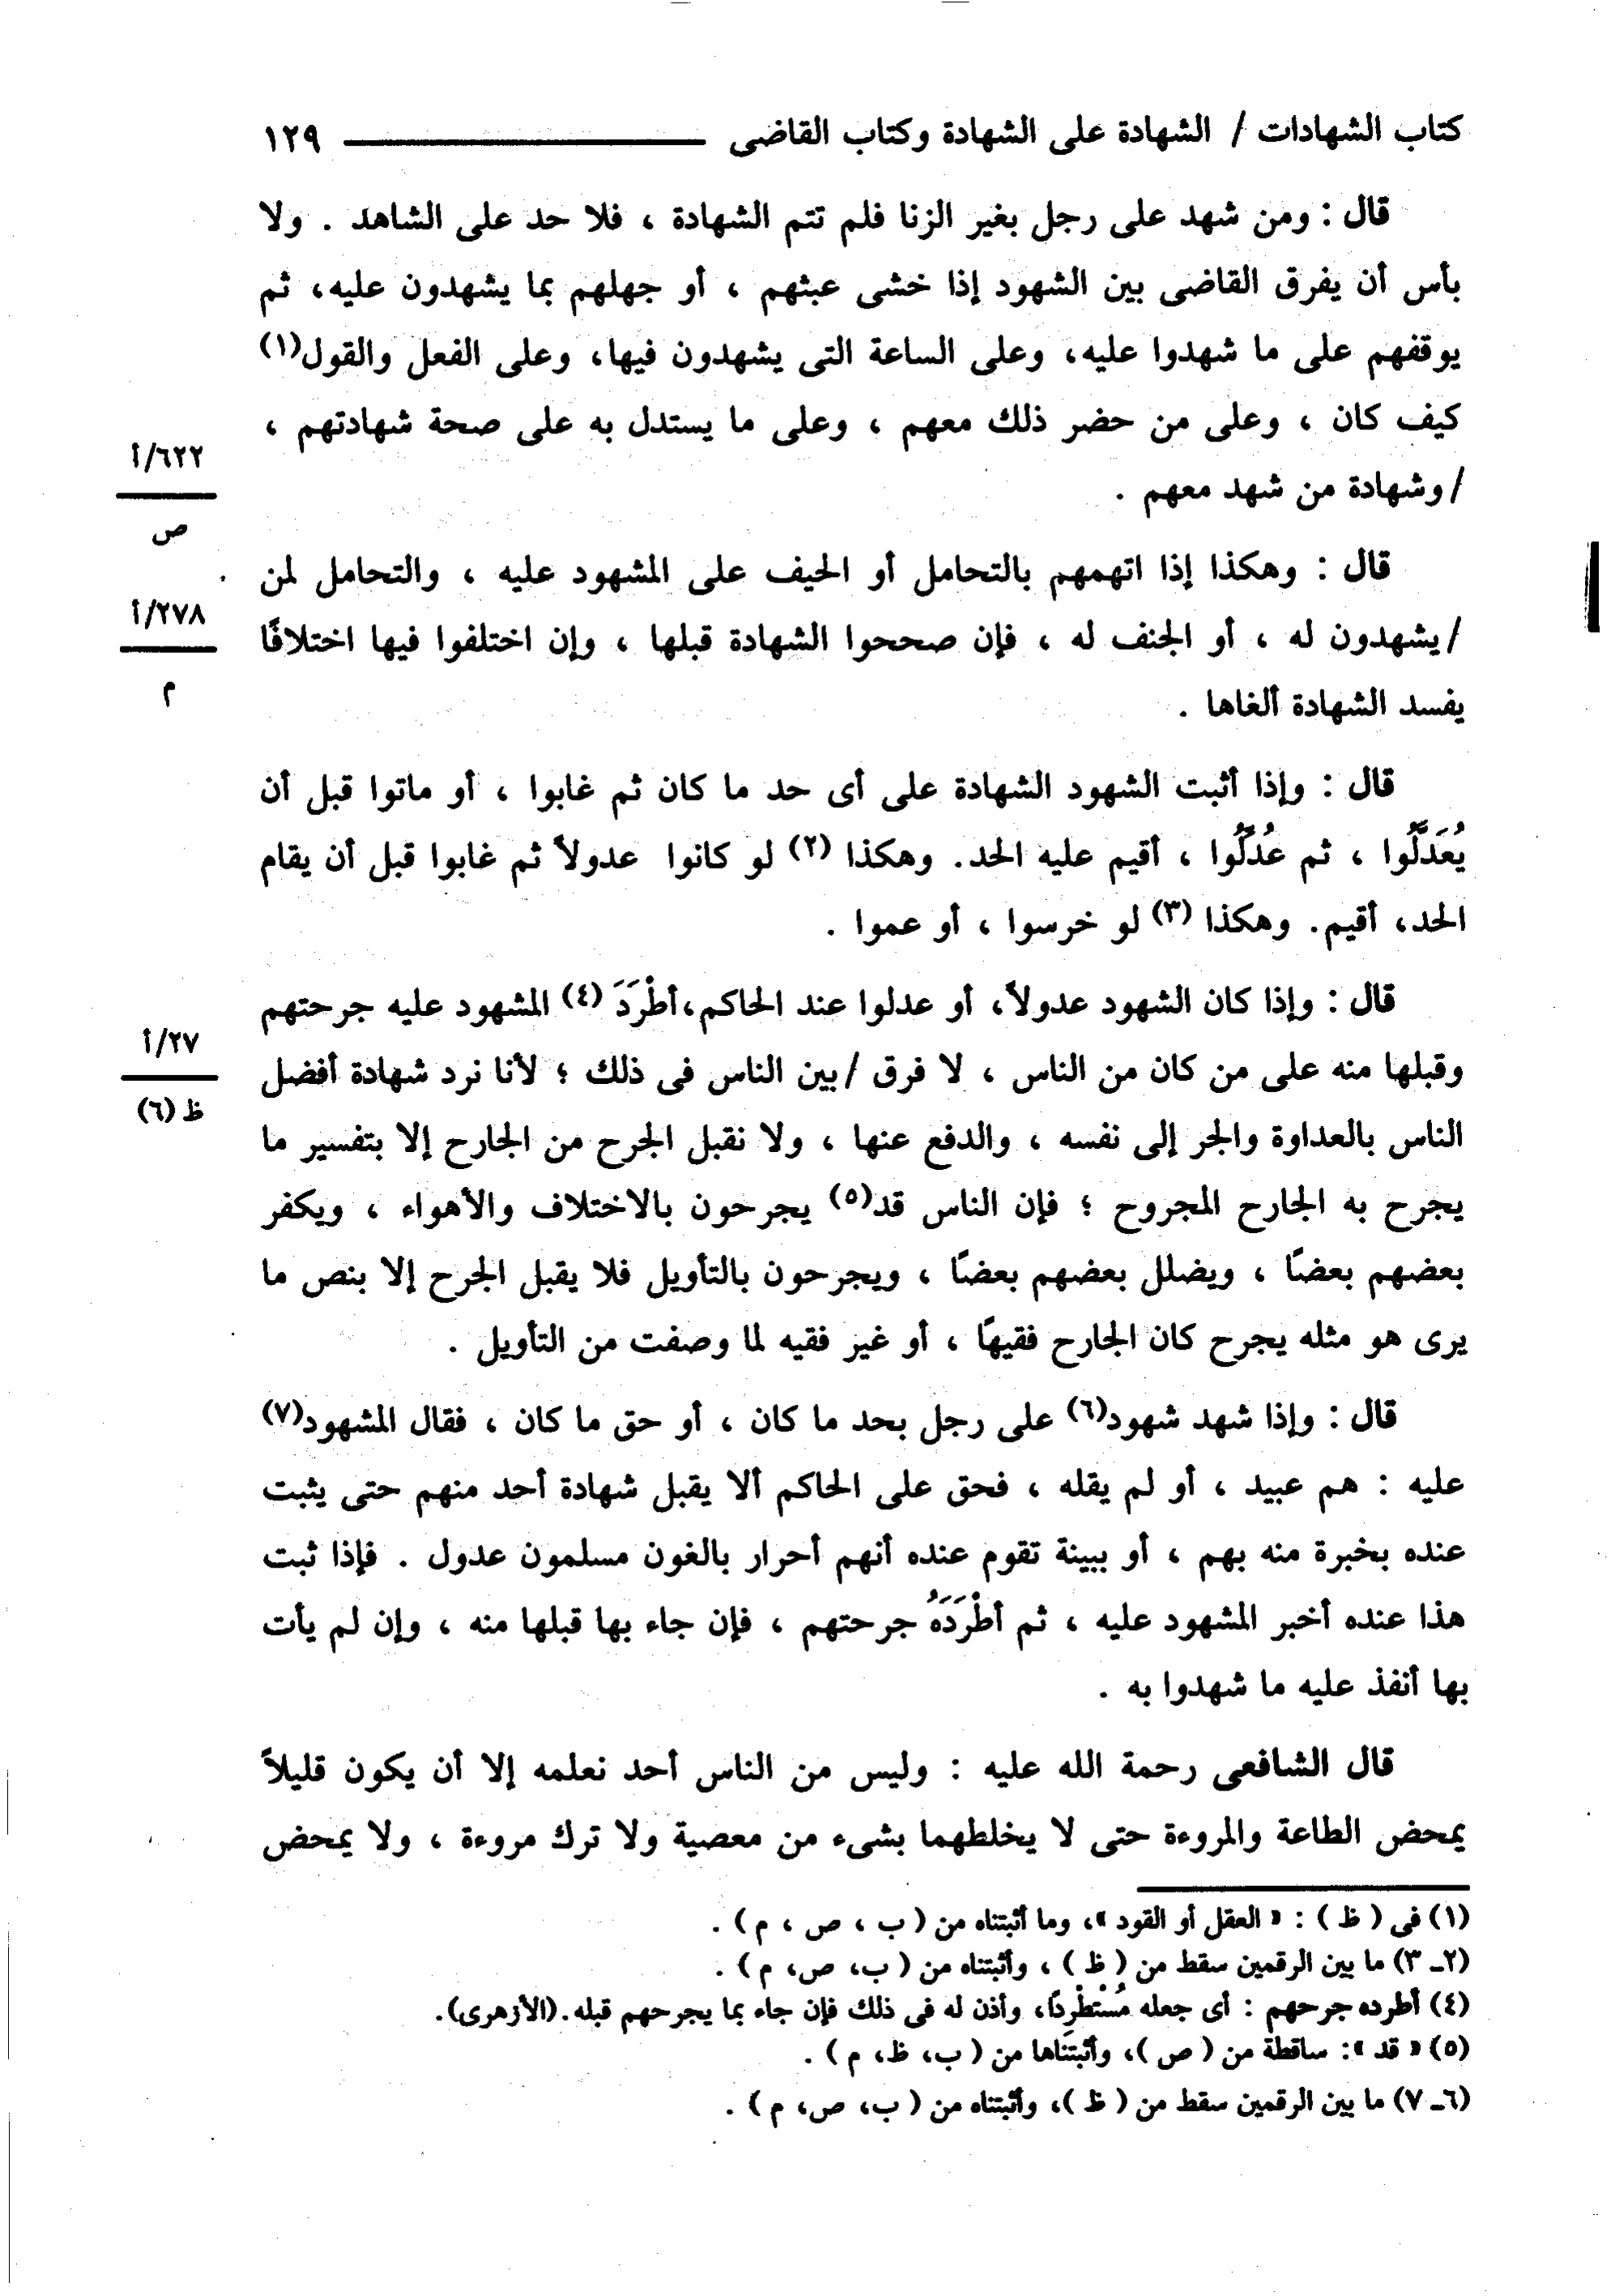 كتاب الشهادات / الشهادة على الشهادة وكتاب القاضى ١٢٩
قال : ومن شهد على رجل بغير الزنا فلم تتم الشهادة ، فلا حد على الشاهد . ولا
بأس أن يفرق القاضى بين الشهود إذا خشى عبثهم ، أو جهلهم بما يشهدون عليه، ثم
يوقفهم على ما شهدوا عليه، وعلى الساعة التى يشهدون فيها، وعلى الفعل والقول(١)
كيف كان ، وعلى من حضر ذلك معهم ، وعلى ما يستدل به على صحة شهادتهم ،
/وشهادة من شهد معهم .
٦٢٢/أ
ص
قال : وهكذا إذا اتهمهم بالتحامل أو الحيف على المشهود عليه ، والتحامل لمن
/يشهدون له ، أو الجنف له ، فإن صححوا الشهادة قبلها ، وإن اختلفوا فيها اختلافًا
يفسد الشهادة ألغاها .
٢٧٨/أ
م
قال : وإذا أثبت الشهود الشهادة على أى حد ما كان ثم غابوا ، أو ماتوا قبل أن
يُعَدَّلُوا ، ثم عُدِّلُوا ، أقيم عليه الحد. وهكذا (٢) لو كانوا عدولاً ثم غابوا قبل أن يقام
الحد، أقيم. وهكذا (٣) لو خرسوا ، أو عموا .
قال : وإذا كان الشهود عدولاً، أو عدلوا عند الحاكم،أطْرَدَ (٤) المشهود عليه جرحتهم
وقبلها منه على من كان من الناس ، لا فرق /بين الناس فى ذلك ؛ لأنا نرد شهادة أفضل
الناس بالعداوة والجر إلى نفسه ، والدفع عنها ، ولا نقبل الجرح من الجارح إلا بتفسير ما
يجرح به الجارح المجروح ؛ فإن الناس قد(٥) يجرحون بالاختلاف والأهواء ، ويكفر
بعضهم بعضًا ، ويضلل بعضهم بعضًا ، ويجرحون بالتأويل فلا يقبل الجرح إلا بنص ما
يرى هو مثله يجرح كان الجارح فقيهًا ، أو غير فقيه لما وصفت من التأويل .
٢٧/أ
ظ (٦)
قال : وإذا شهد شهود(٦) على رجل بحد ما كان ، أو حق ما كان ، فقال المشهود(٧)
عليه : هم عبيد ، أو لم يقله ، فحق على الحاكم ألا يقبل شهادة أحد منهم حتى يثبت
عنده بخبرة منه بهم ، أو ببينة تقوم عنده أنهم أحرار بالغون مسلمون عدول . فإذا ثبت
هذا عنده أخبر المشهود عليه ، ثم أطْرَدَهُ جرحتهم ، فإن جاء بها قبلها منه ، وإن لم يأت
بها أنفذ عليه ما شهدوا به .
قال الشافعى رحمة الله عليه : وليس من الناس أحد نعلمه إلا أن يكون قليلاً
يمحض الطاعة والمروءة حتى لا يخلطهما بشىء من معصية ولا ترك مروءة ، ولا يمحض
(١) فى ( ظ ) : « العقل أو القود »، وما أثبتناه من ( ب ، ص ، م ) .
(٢ـ ٣) ما بين الرقمين سقط من ( ظ ) ، وأثبتناه من ( ب، ص، م ) .
(٤) أطرده جرحهم : أى جعله مُسْتَطْرِدًا، وأذن له فى ذلك فإن جاء بما يجرحهم قبله.(الأزهرى).
(٥) « قد »: ساقطة من ( ص )، وأثبتناها من ( ب، ظ، م ) .
(٦ـ ٧) ما بين الرقمين سقط من ( ظ )، وأثبتناه من ( ب، ص، م ) .